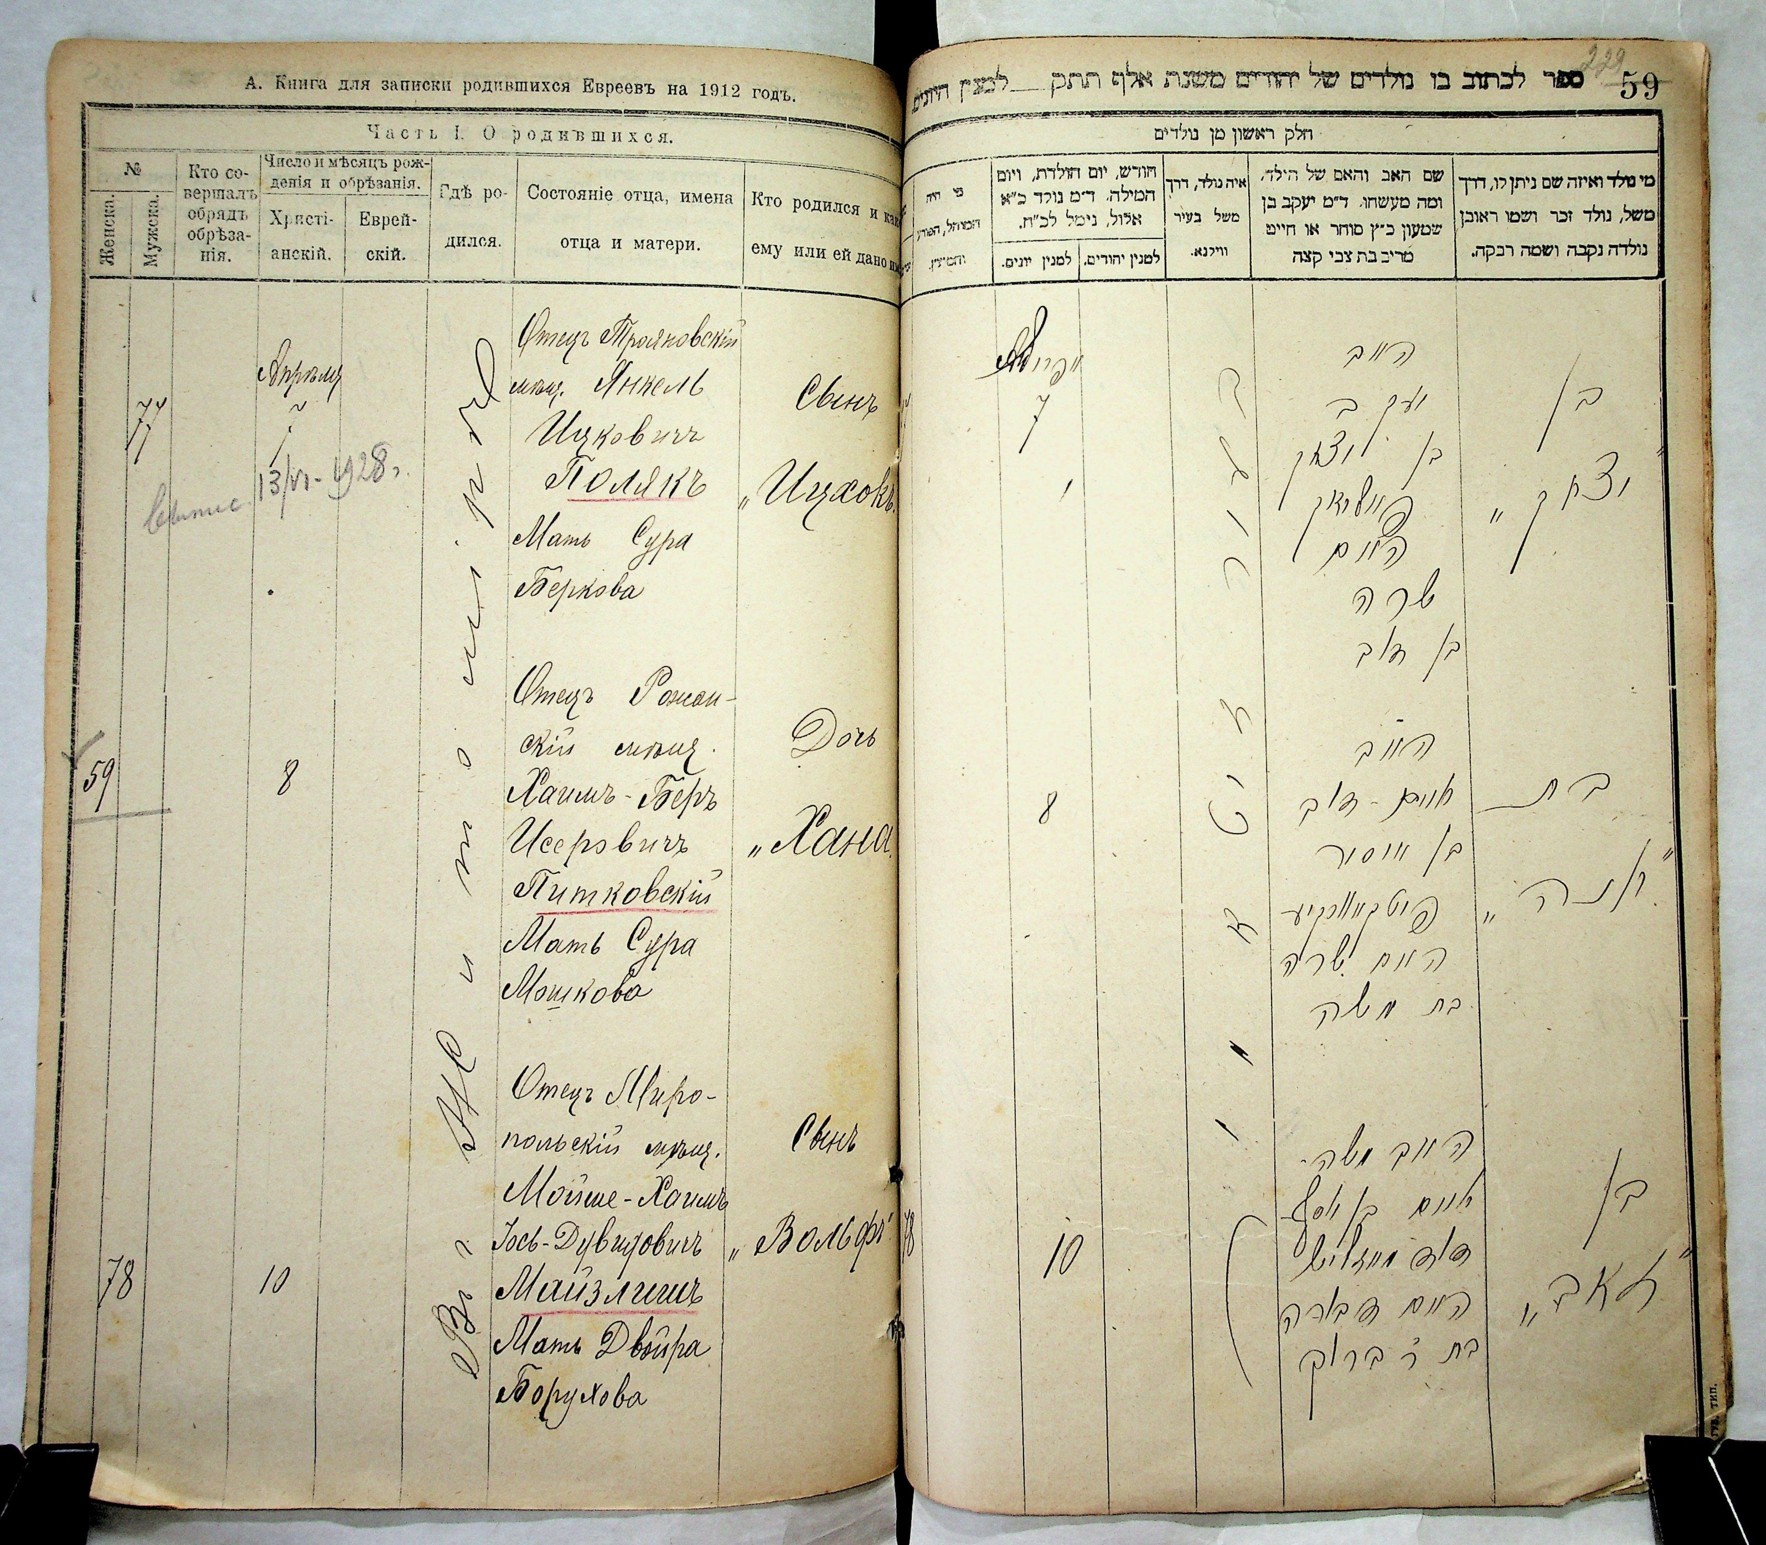 А. Книга для записки родившихся Евреевъ на 1912 годъ.
Часть I. О родившихся.
№
Женска.
Мужска.
Кто со-
вершалъ
обрядъ
обрѣза-
нія.
Число и мѣсяцъ рож-
денія и обрѣзанія.
Христі-
анскій.
Еврей-
скій.
Гдѣ ро-
дился.
Состояніе отца, имена
отца и матери.
Кто родился и как
ему или ей дано
77
Апрѣля
7
13/VI - 1928 г.
Отецъ Трояновскій
мѣщ. Янкель
Ицковичъ
Полякъ
Мать Сура
Беркова
Сынъ
„Ицхокъ
59
8
Отецъ Рожан-
скій мѣщ.
Хаимъ-Беръ
Исеровичъ
Питковскій
Мать Сура
Мошкова
Дочь
„Хана
78
10
Отецъ Миро-
польскій мѣщ.
Мойше-Хаимъ
Іось-Дувидовичъ
Майзлишъ
Мать Двойра
Борухова
Сынъ
„Вольфъ
Въ г. Житомирѣ
229
59
ספר לכתוב בו נולדים של יהודים משנת אלף תתק __ למנין היונים
חלק ראשון מן נולדים
מי נולד ואיזה שם ניתן לו, דרך
משל, נולד זכר ושמו ראובן
נולדה נקבה ושמה רבקה.
שם האב והאם של הילד,
ומה מעשהו. ד״מ יעקב בן
שמעון כ״ץ סוחר או חייט
מריב בת צבי קצה
איה נולד, דרך
משל בעיר
ווילנא.
חודש, יום הולדת, ויום
המילה. ד״מ נולד כ״א
אלול, נימל לכ״ח.
למנין יהודים.
למנין יונים.
מי היה
אפריל
7
האב
יעקב
בן יצחק
פוליאק
האם
שרה
בן דוב
בן
„יצחק״
8
האב
חיים-דוב
בן איסור
פיטקאווסקי
האם שרה
בת משה
בת
„חנה״
78
10
האב משה
חיים בן יוסף
דוד מייזליש
האם דבורה
בת ר׳ ברוך
בן
„זאב״